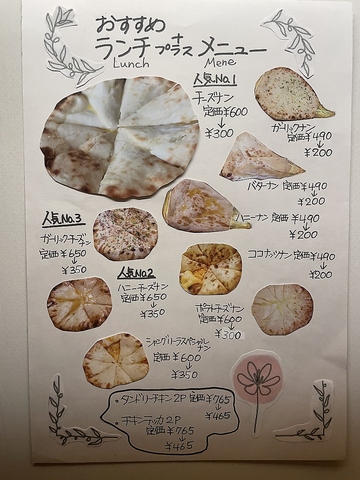 おすすめ
ランチプラス+メニュー
Lunch Mene
人気No.1
チーズナン
定価¥600
↓
¥300
ガーリックナン
定価¥490
↓
¥200
バターナン 定価¥490
↓
¥200
ハニーナン 定価¥490
↓
¥200
人気No.3
ガーリックチーズナン
定価¥650
↓
¥350
人気No.2
ハニーチーズナン
定価¥650
↓
¥350
ココナッツナン 定価¥490
↓
¥200
ポテトチーズナン
定価¥600
↓
¥300
シャングリーラスペシャルナン
定価¥600
↓
¥350
・タンドリーチキン2P 定価¥765
↓
¥465
・チキンティッカ2P
定価¥765
↓
¥465